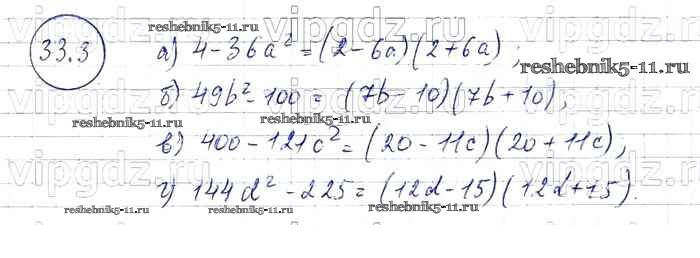 33.3
а) 4 - 36a² = (2 - 6a)(2 + 6a);
б) 49b² - 100 = (7b - 10)(7b + 10);
в) 400 - 121c² = (20 - 11c)(20 + 11c);
г) 144d² - 225 = (12d - 15)(12d + 15).
vipgdz.ru
reshebnik5-11.ru
reshebnik5-11.ru
vipgdz.ru
reshebnik5-11.ru
reshebnik5-11.ru
vipgdz.ru
vipgdz.ru
reshebnik5-11.ru
reshebnik5-11.ru